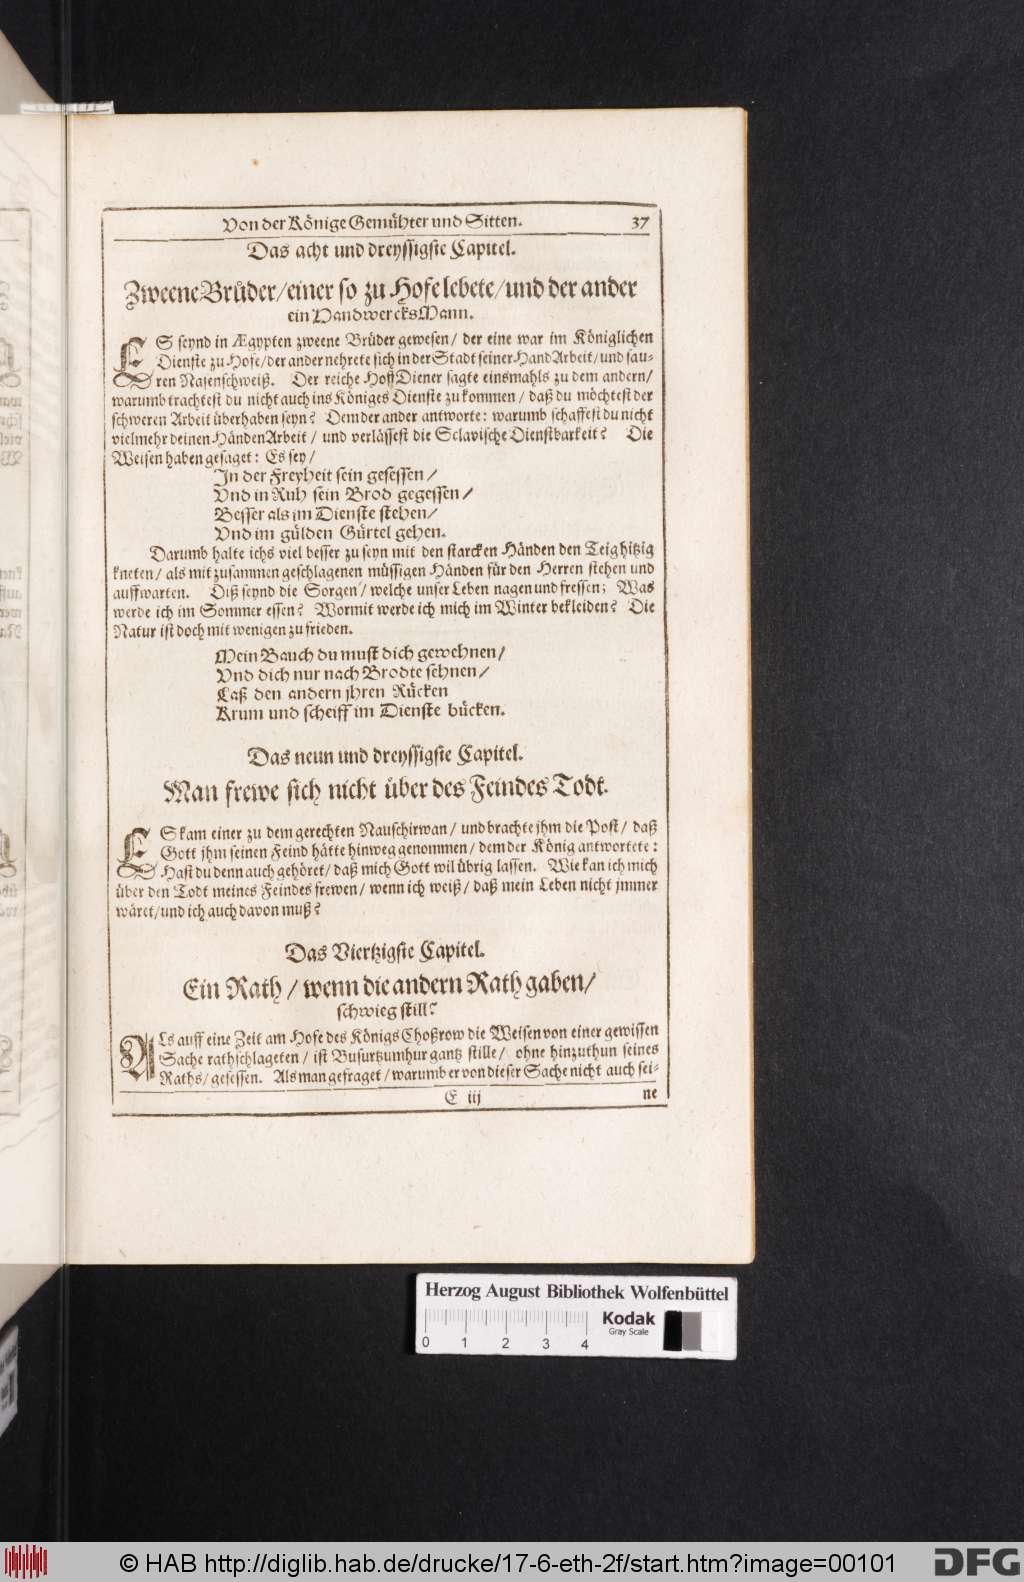 Von der Könige Gemühter und Sitten. 37
Das acht und dreyssigste Capitel.
Zweene Brüder/einer so zu Hofe lebete/und der ander
ein HandwercksMann.
ES seynd in Ægypten zweene Brüder gewesen/ der eine war im Königlichen
Dienste zu Hofe/der ander nehrete sich in der Stadt seiner HandArbeit/und sau-
ren Nasenschweiß. Der reiche HoffDiener sagte einsmahls zu dem andern/
warumb trachtest du nicht auch ins Königes Dienste zu kommen/ daß du möchtest der
schweren Arbeit überhaben seyn? Dem der ander antworte: warumb schaffest du nicht
vielmehr deinen HändenArbeit/ und verlässest die Sclavische Dienstbarkeit? Die
Weisen haben gesaget: Es sey/
In der Freyheit sein gesessen/
Vnd in Ruh sein Brod gegessen/
Besser als im Dienste stehen/
Vnd im gülden Gürtel gehen.
Darumb halte ichs viel besser zu seyn mit den starcken Händen den Teig hitzig
kneten/ als mit zusammen geschlagenen müssigen Händen für den Herren stehen und
auffwarten. Diß seynd die Sorgen/ welche unser Leben nagen und fressen; Was
werde ich im Sommer essen? Wormit werde ich mich im Winter bekleiden? Die
Natur ist doch mit wenigen zu frieden.
Mein Bauch du must dich gewehnen/
Vnd dich nur nach Brodte sehnen/
Laß den andern jhren Rücken
Krum und scheiff im Dienste bücken.
Das neun und dreyssigste Capitel.
Man frewe sich nicht über des Feindes Todt.
ES kam einer zu dem gerechten Nauschirwan/ und brachte jhm die Post/ daß
Gott jhm seinen Feind hätte hinweg genommen/ dem der König antwortete:
Hast du denn auch gehöret/ daß mich Gott wil übrig lassen. Wie kan ich mich
über den Todt meines Feindes frewen/ wenn ich weiß/ daß mein Leben nicht jmmer
wäret/und ich auch davon muß?
Das Viertzigste Capitel.
Ein Rath/ wenn die andern Rath gaben/
schwieg still?
ALs auff eine Zeit am Hofe des Königs Choßrow die Weisen von einer gewissen
Sache rathschlageten/ ist Busurtzumhur gantz stille/ ohne hinzuthun seines
Raths/ gesessen. Als man gefraget/ warumb er von dieser Sache nicht auch sei-
E iij ne
Herzog August Bibliothek Wolfenbüttel
Kodak
Gray Scale
0 1 2 3 4
© HAB http://diglib.hab.de/drucke/17-6-eth-2f/start.htm?image=00101
DFG